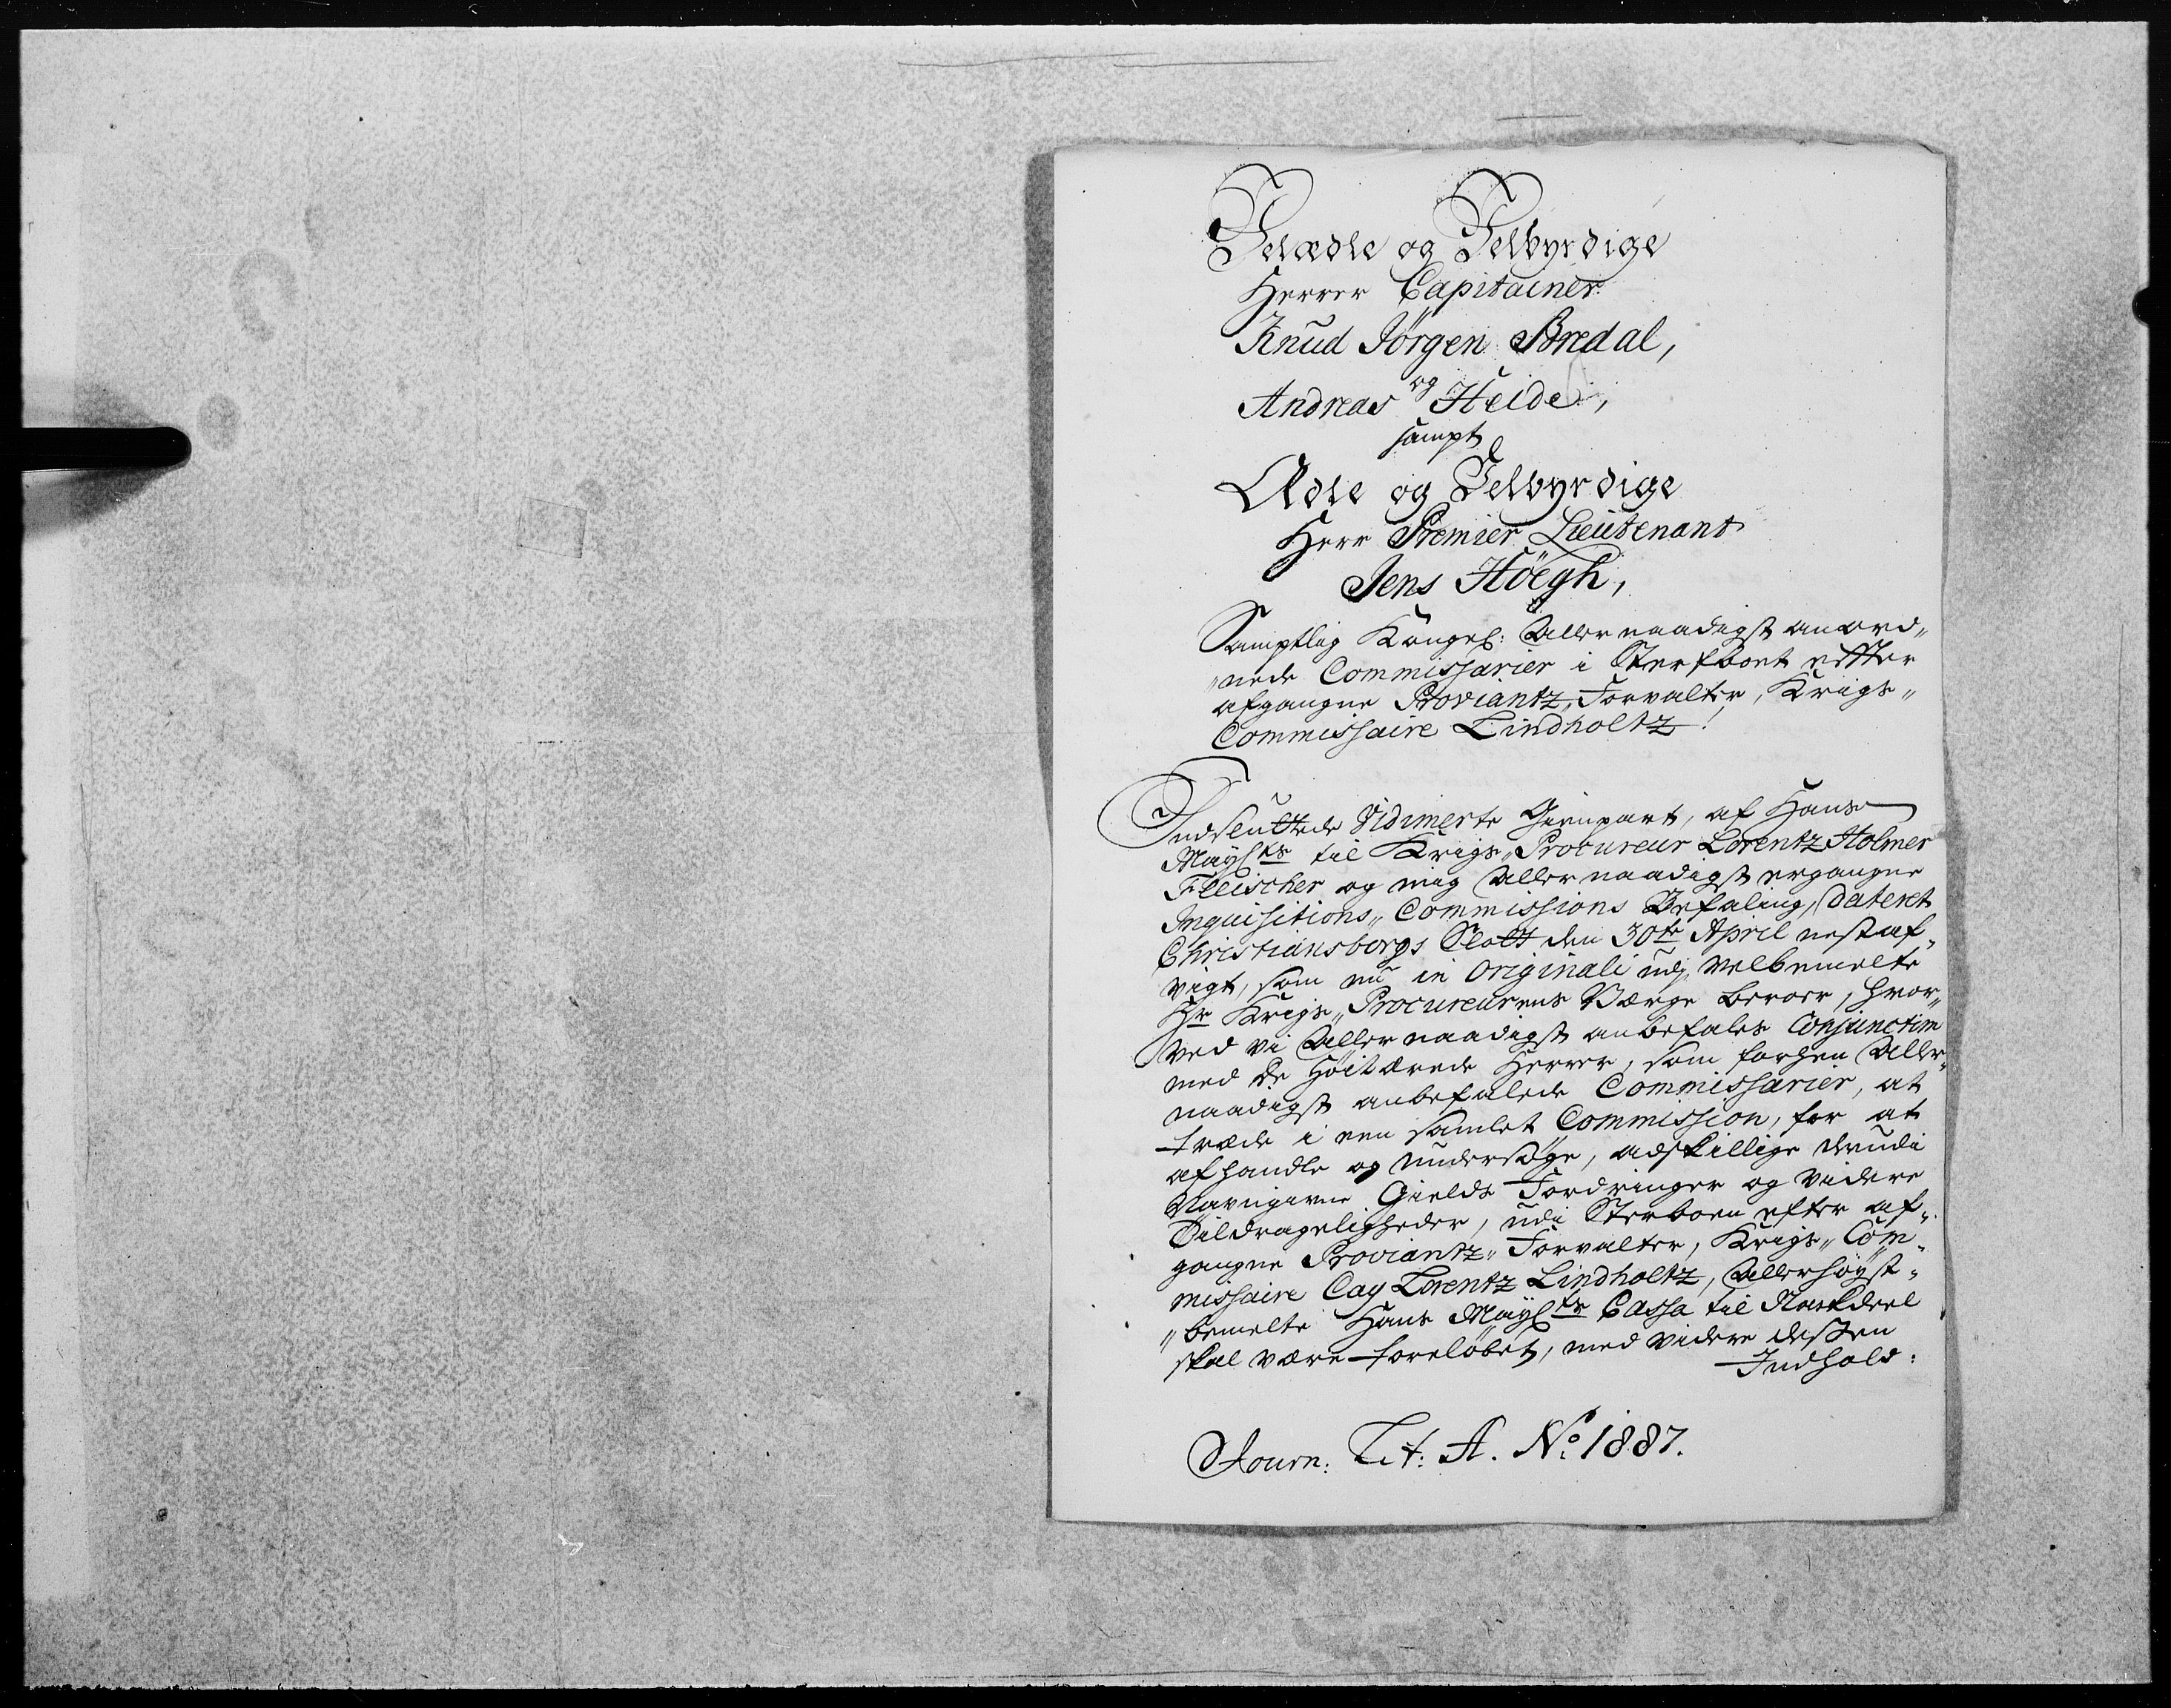 Velædle og Velbyrdige
Herrer Capitainer
Knud Jörgen Bredal,
og
Andreas Heide,
sampt
Ædle og Velbyrdige
Herr Premier Lieutenant
Jens Höegh,
Samptlig Kongel: Allernaadigst anord„
„nede Commissarier i Sterfboet effter
afgangne Proviantz„Forvalter, Krigs„
Commissaire Lindholtz!
Indsluttede Vidimerte Gienpart, af Hans
Mayts til Krigs„Procureur Lorentz Holmer
Fleischer og mig Allernaadigst ergangne
Inquisitions„Commissions Befaling, dateret
Christiansborgs Slott den 30te April nestaf„
vigt, som nu in Originali udj Velbemelte
Hr Krigs„Procureurens Værge beroer, hvor„
ved vi Allernaadigst anbefales Conjunctim
med De Høitærede Herrer, som forhen Aller„
naadigst anbefalede Commissarier, at
træde i een samlet Commission, for at
afhandle og undersøge, adskillige derudi
Navngivne Gields Fordringer og videre
Tildrageligheder, udi Sterboen efter af„
gangne Proviantz„Forvalter, Krigs„Com„
missaire Cay Lorentz Lindholtz, Allerhøyst„
„bemelte Hans Mayts Cassa til Nachdeel
skal være foreløbet, med videre dessen
Indhold:
Journ: Lit: A. No 1887.